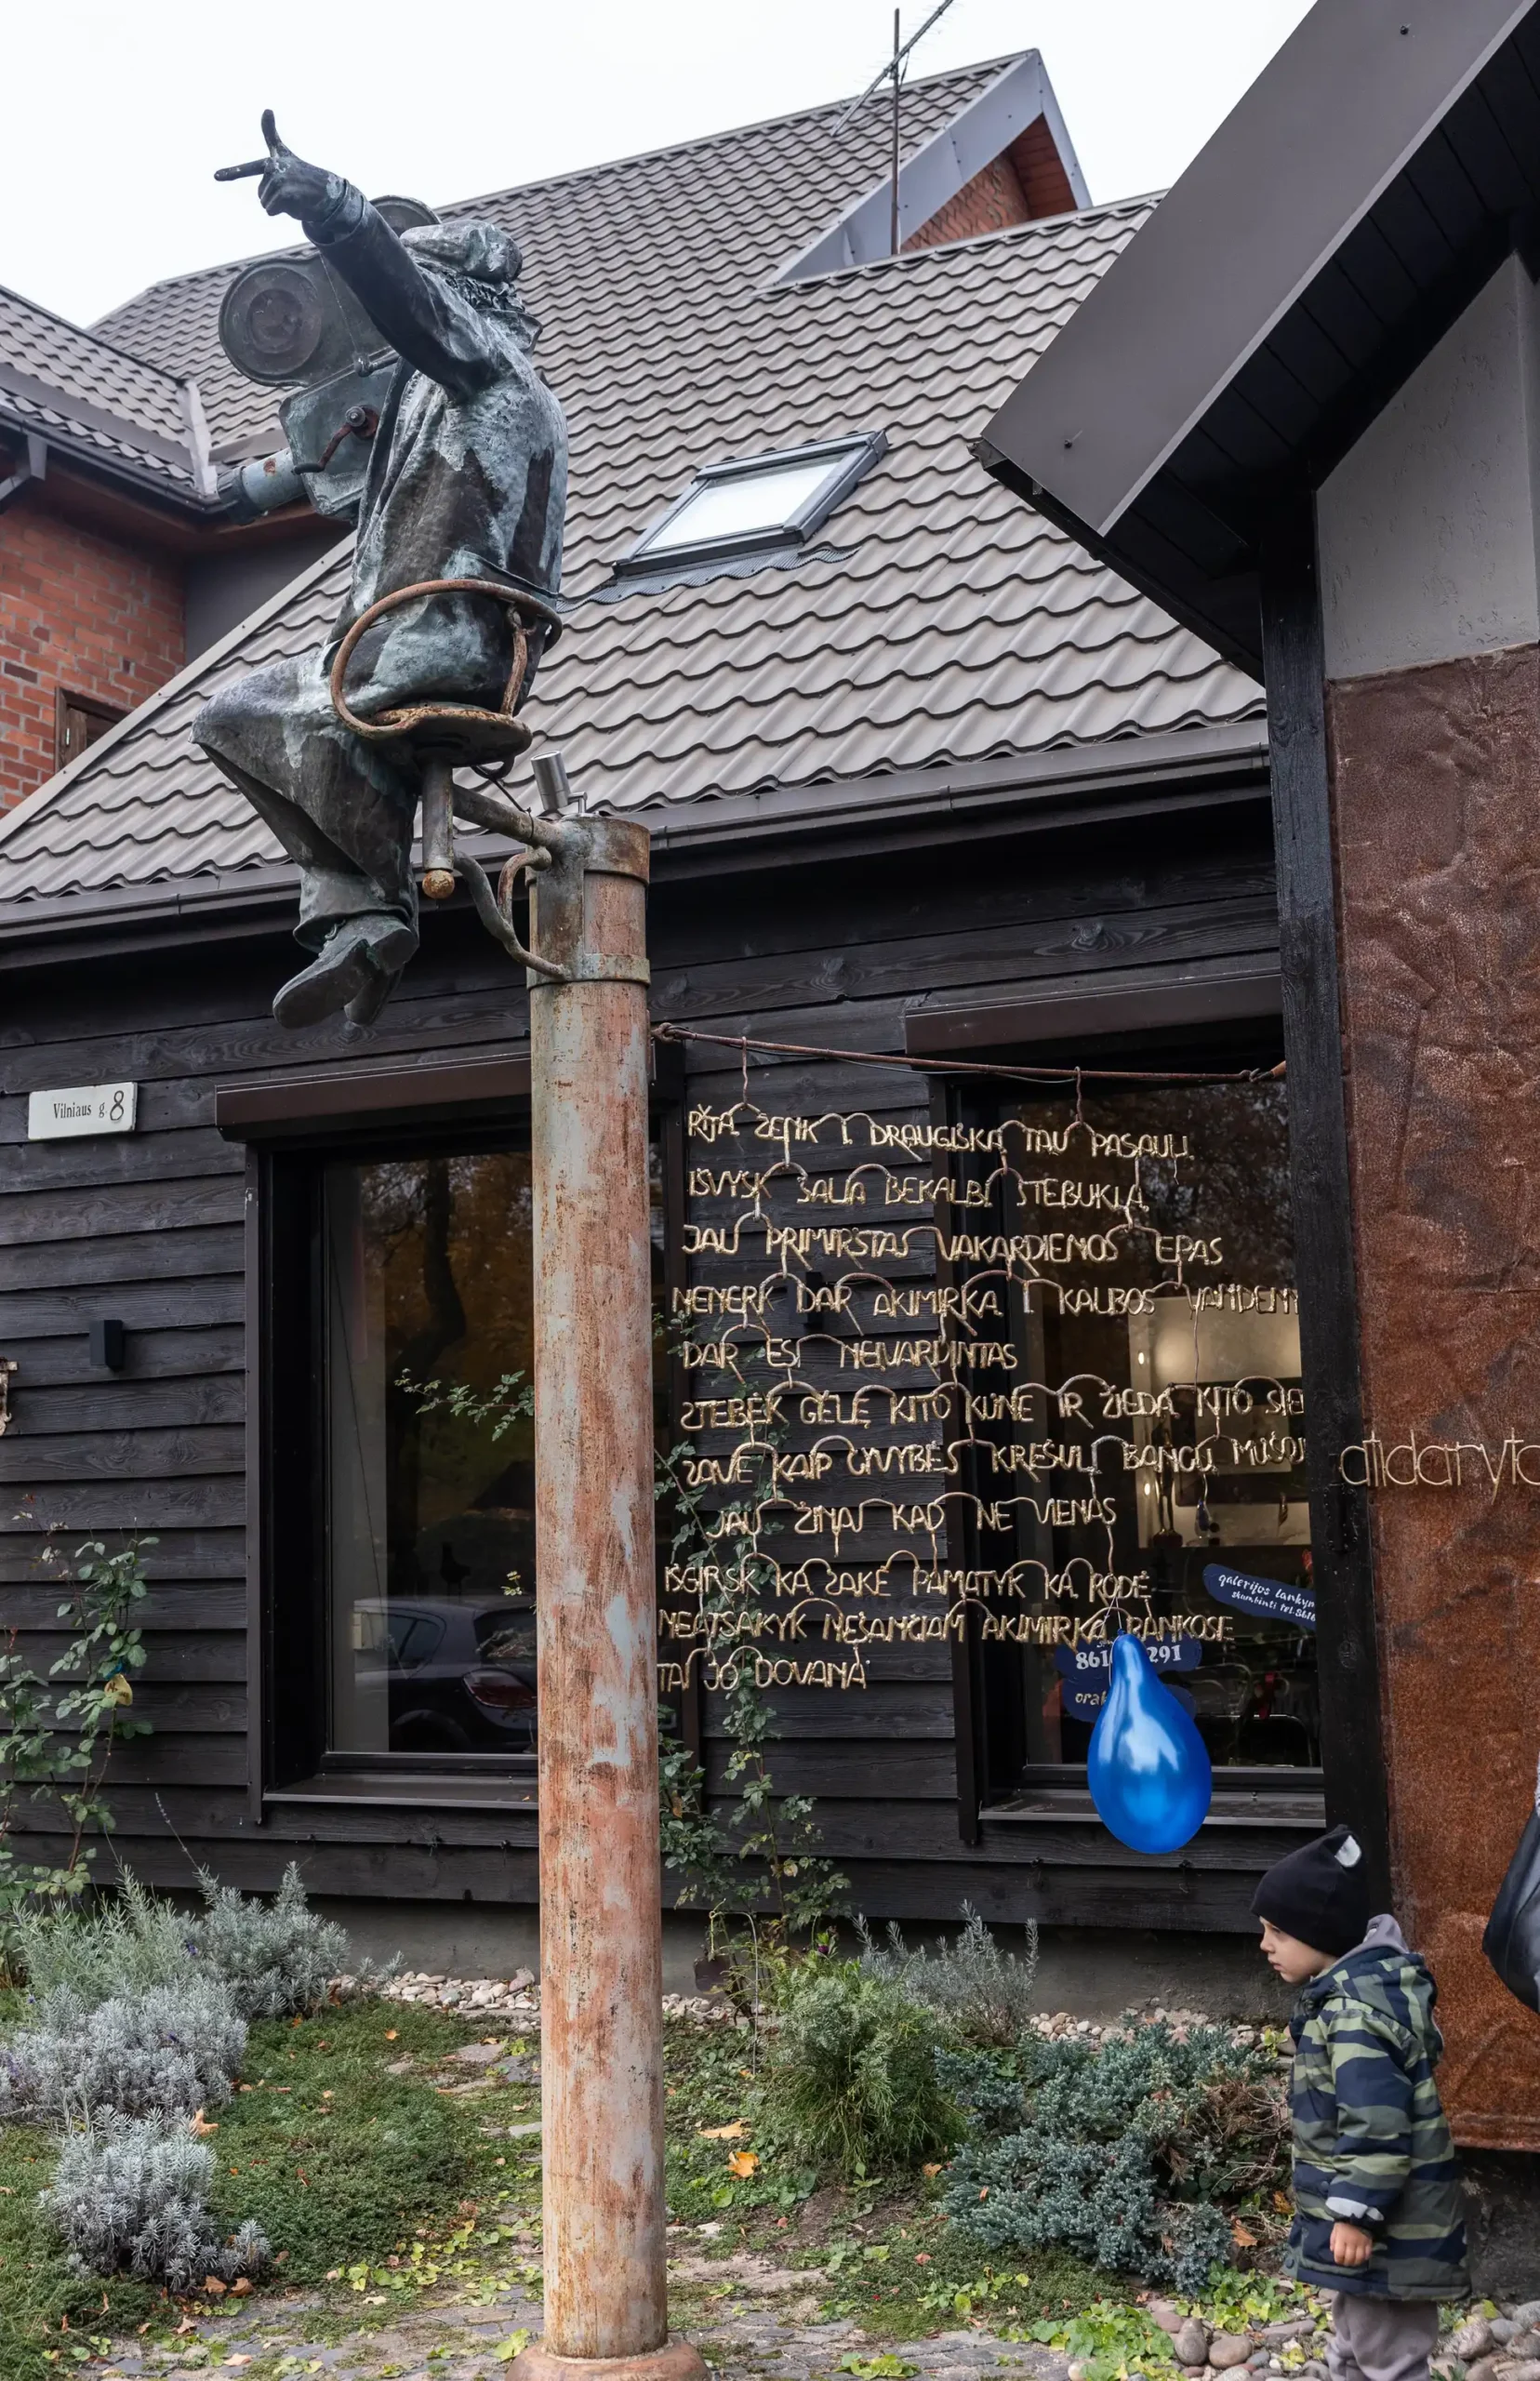 Vilniaus g 8
RYTĄ ŽENK Į DRAUGIŠKĄ TAU PASAULĮ
IŠVYSK ŠALIA BEKALBĮ STEBUKLĄ
JAU PRIMIRŠTAS VAKARDIENOS EPAS
NENERK DAR AKIMIRKĄ Į KALBOS VANDENĮ
DAR ESI NEĮVARDINTAS
STEBĖK GĖLĘ KITO KŪNE IR ŽIEDĄ KITO
SAVE KAIP GYVYBĖS KREŠULĮ BANGŲ
JAU ŽINAI KAD NE VIENAS
IŠGIRSK KĄ SAKĖ PAMATYK KĄ RODĖ
NEATSAKYK NEŠANČIAM AKIMIRKĄ RANKOSE
TAI JO DOVANA
atidaryta
galerijos lankym
skambinti tel. 8616
861 291
orak